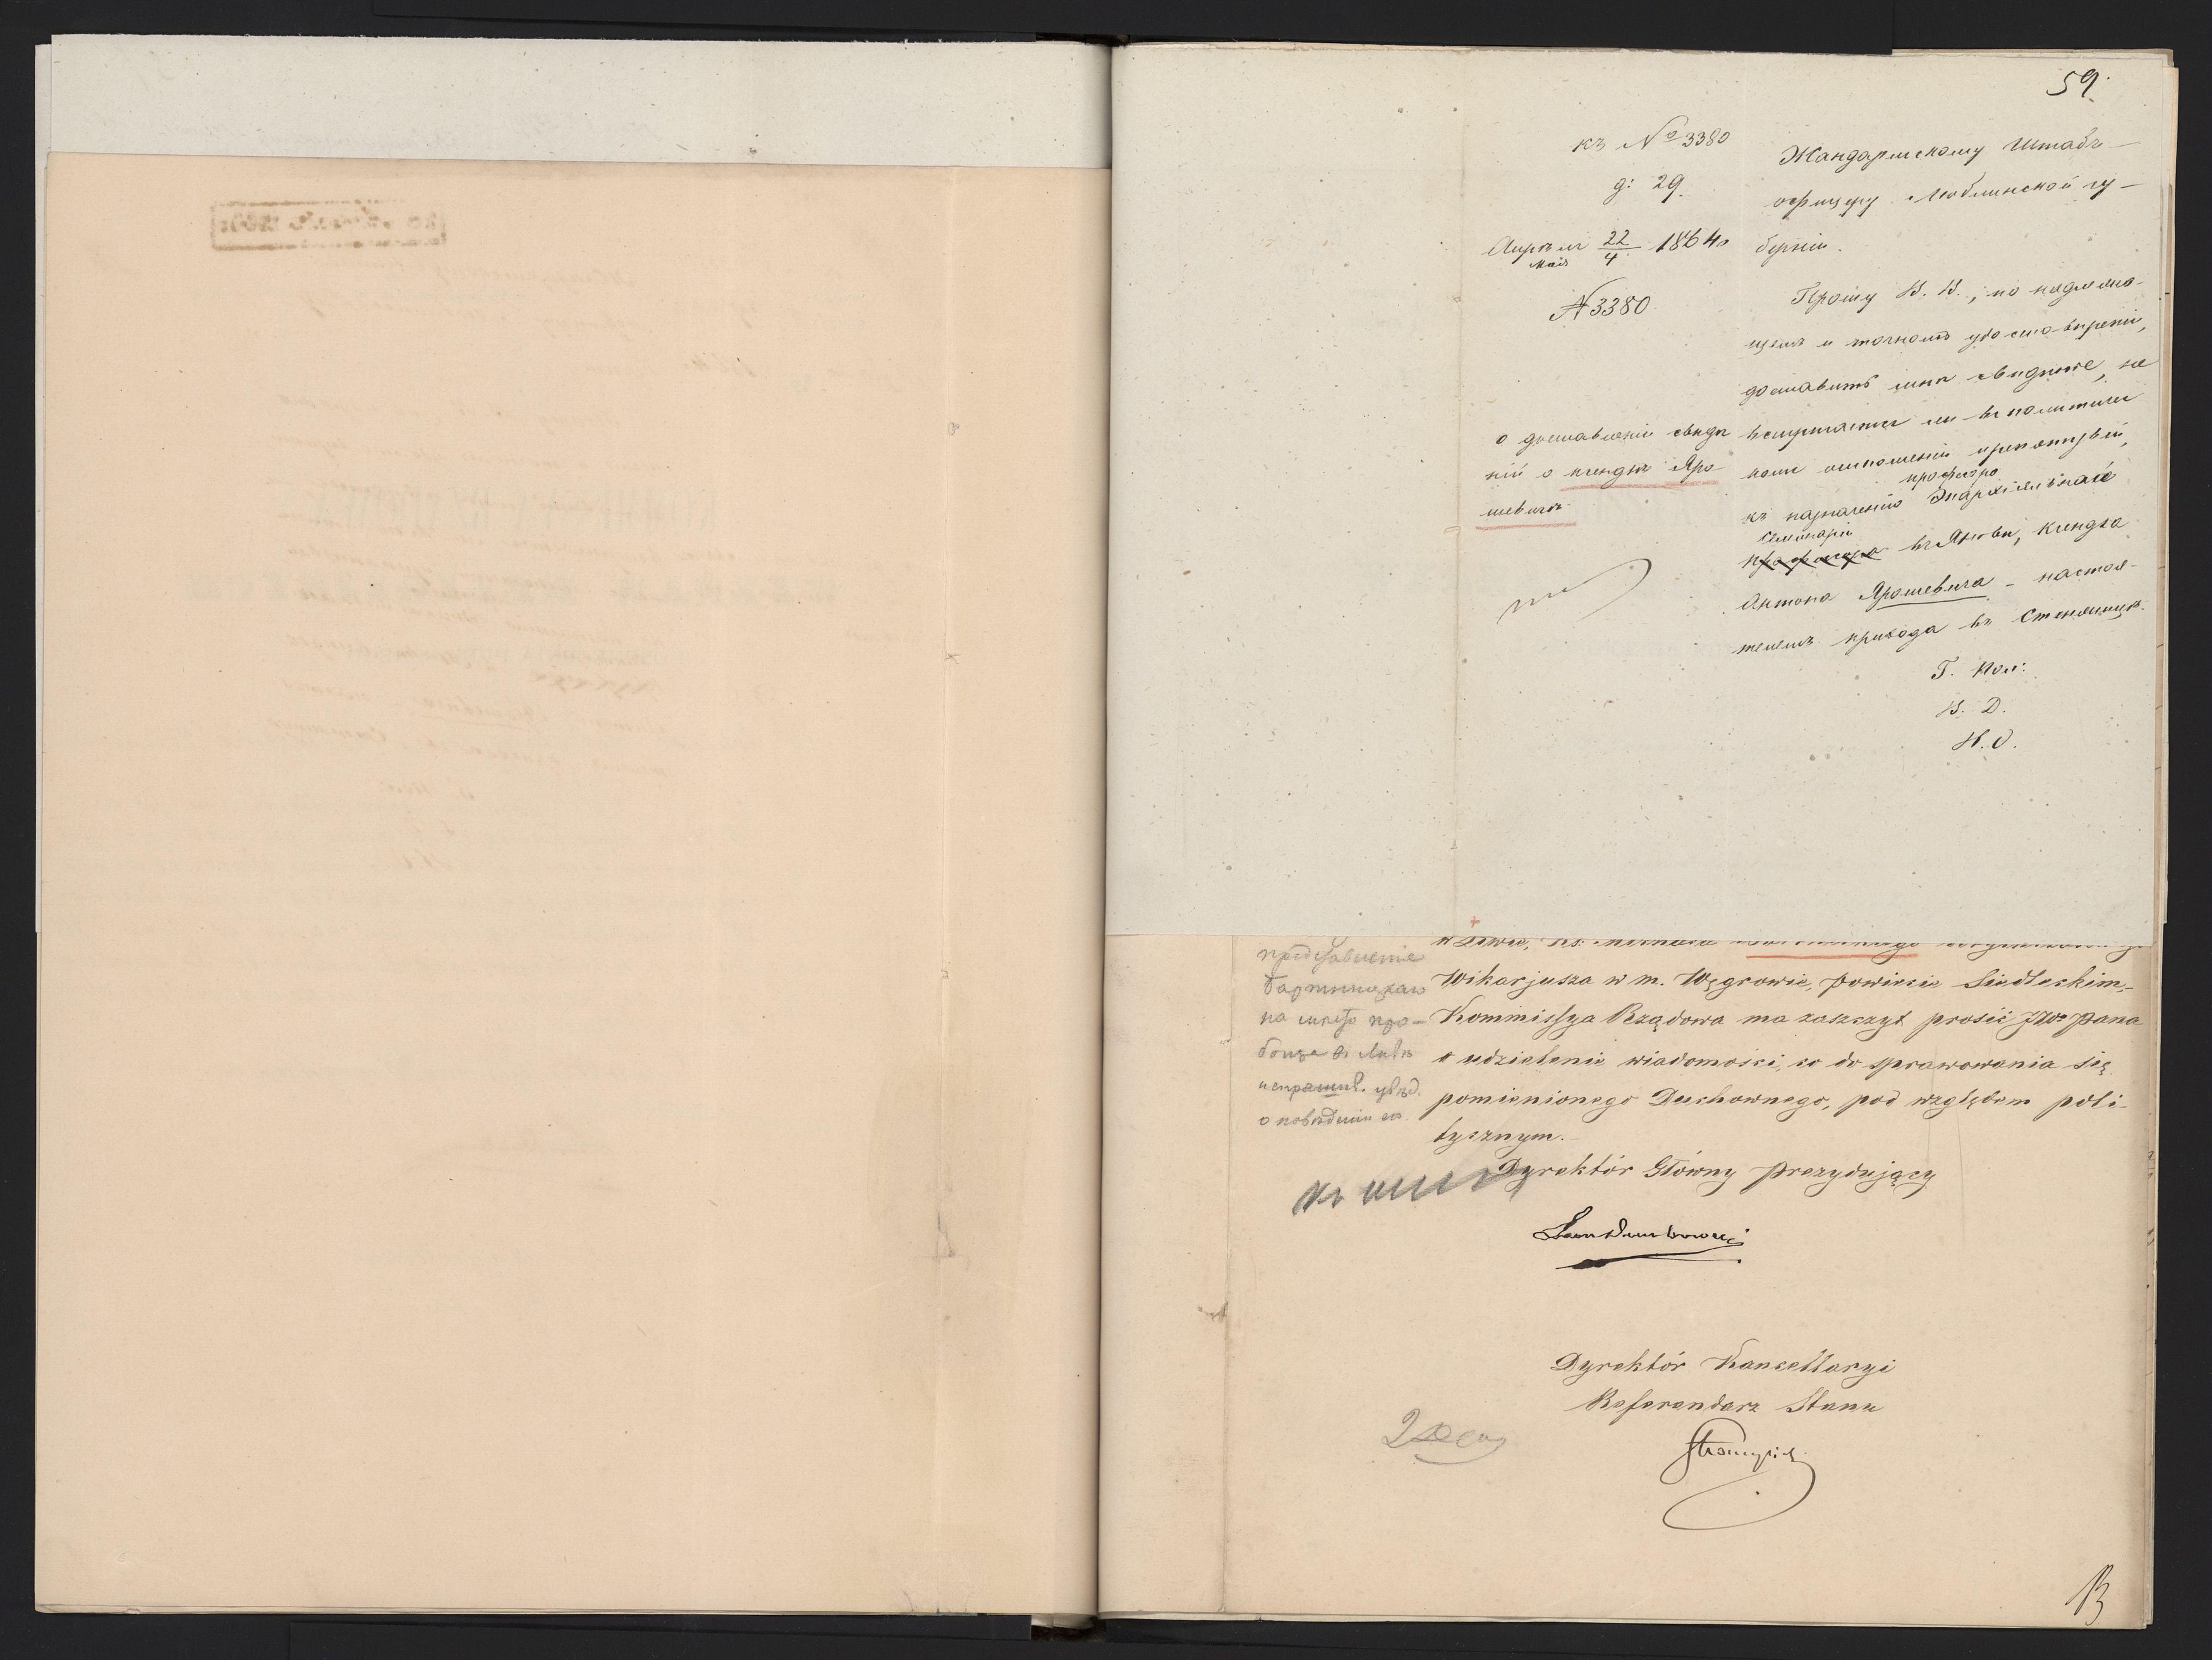 59.
къ № 3380
д: 29.
Апрѣля 22 / Мая 4 1864
№ 3380
о доставленіи свѣдѣ
ній о ксендзѣ Яро-
шевичѣ
Жандармскому Штабъ-
офицеру Люблинской гу-
берніи.
Прошу В. В., по надлежа-
щемъ и точномъ удостовѣреніи,
доставить мнѣ свѣдѣніе, не
встрѣчается ли въ политичес
комъ отношеніи препятствій,
къ назначенію профессора Эпархіальной
семинаріи въ Яновѣ, ксендза
Антона Ярошевича - настоя-
телемъ прихода въ Стенжицѣ.
Г. Пол:
В. Д.
Н. О.
представленіе
на мѣсто про-
боща въ Ливѣ
испрашив. увѣд.
о поведеніи его.
Wikarjusza w m. Węgrowie, powiecie Siedleckim,-
Kommissya Rządowa ma zaszczyt prosić JW. Pana
o udzielenie wiadomości, co do sprawowania się
pomienionego Duchownego, pod względem poli-
tycznym.-
Dyrektór Główny Prezydujący
Dyrektór Kancellaryi
Referendarz Stanu